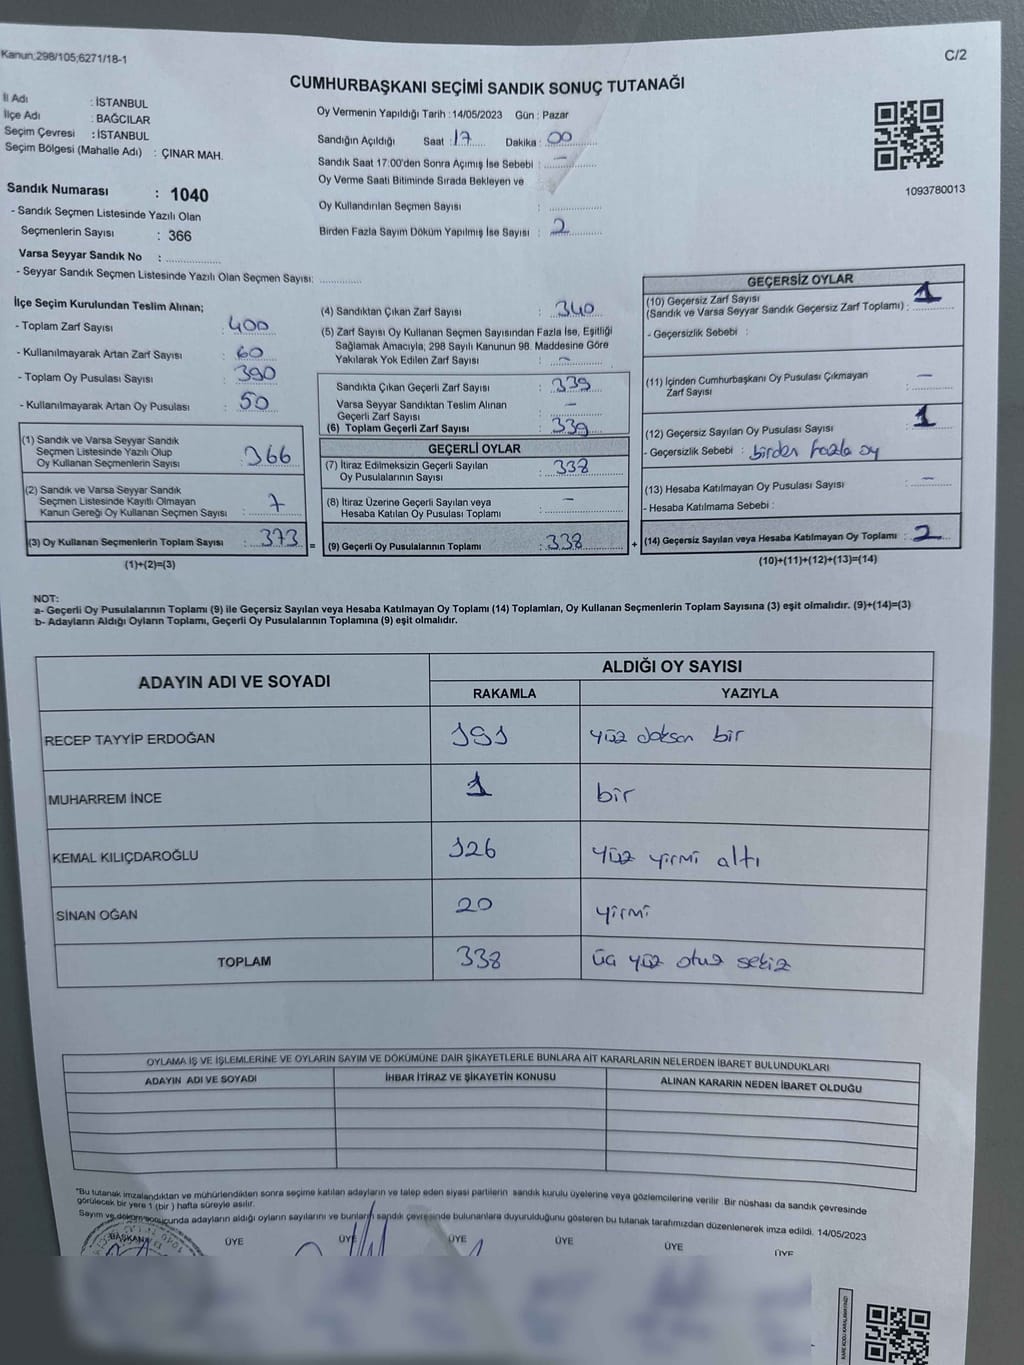 Kanun;298/105;6271/18-1
C/2
CUMHURBAŞKANI SEÇİMİ SANDIK SONUÇ TUTANAĞI
İl Adı : İSTANBUL
İlçe Adı : BAĞCILAR
Seçim Çevresi : İSTANBUL
Seçim Bölgesi (Mahalle Adı) : ÇINAR MAH.
Oy Vermenin Yapıldığı Tarih : 14/05/2023 Gün : Pazar
Sandığın Açıldığı Saat : 17 Dakika : 00
Sandık Saat 17:00'den Sonra Açımış İse Sebebi : –
Oy Verme Saati Bitiminde Sırada Bekleyen ve
Oy Kullandırılan Seçmen Sayısı :
Birden Fazla Sayım Döküm Yapılmış İse Sayısı : 2
1093780013
Sandık Numarası : 1040
- Sandık Seçmen Listesinde Yazılı Olan
Seçmenlerin Sayısı : 366
Varsa Seyyar Sandık No :
- Seyyar Sandık Seçmen Listesinde Yazılı Olan Seçmen Sayısı:
İlçe Seçim Kurulundan Teslim Alınan;
- Toplam Zarf Sayısı : 400
- Kullanılmayarak Artan Zarf Sayısı : 60
- Toplam Oy Pusulası Sayısı : 390
- Kullanılmayarak Artan Oy Pusulası : 50
(1) Sandık ve Varsa Seyyar Sandık
Seçmen Listesinde Yazılı Olup
Oy Kullanan Seçmenlerin Sayısı : 366
(2) Sandık ve Varsa Seyyar Sandık
Seçmen Listesinde Kayıtlı Olmayan
Kanun Gereği Oy Kullanan Seçmen Sayısı : 7
(3) Oy Kullanan Seçmenlerin Toplam Sayısı : 373 =
(1)+(2)=(3)
(4) Sandıktan Çıkan Zarf Sayısı : 340
(5) Zarf Sayısı Oy Kullanan Seçmen Sayısından Fazla İse, Eşitliği
Sağlamak Amacıyla, 298 Sayılı Kanunun 98. Maddesine Göre
Yakılarak Yok Edilen Zarf Sayısı : –
Sandıkta Çıkan Geçerli Zarf Sayısı : 339
Varsa Seyyar Sandıktan Teslim Alınan
Geçerli Zarf Sayısı : –
(6) Toplam Geçerli Zarf Sayısı : 339
GEÇERLİ OYLAR
(7) İtiraz Edilmeksizin Geçerli Sayılan
Oy Pusulalarının Sayısı : 338
(8) İtiraz Üzerine Geçerli Sayılan veya
Hesaba Katılan Oy Pusulası Toplamı : –
(9) Geçerli Oy Pusulalarının Toplamı : 338 +
GEÇERSİZ OYLAR
(10) Geçersiz Zarf Sayısı
(Sandık ve Varsa Seyyar Sandık Geçersiz Zarf Toplamı) : 1
- Geçersizlik Sebebi :
(11) İçinden Cumhurbaşkanı Oy Pusulası Çıkmayan
Zarf Sayısı : –
(12) Geçersiz Sayılan Oy Pusulası Sayısı : 1
- Geçersizlik Sebebi : birden fazla oy
(13) Hesaba Katılmayan Oy Pusulası Sayısı : –
- Hesaba Katılmama Sebebi :
(14) Geçersiz Sayılan veya Hesaba Katılmayan Oy Toplamı : 2
(10)+(11)+(12)+(13)=(14)
NOT:
a- Geçerli Oy Pusulalarının Toplamı (9) ile Geçersiz Sayılan veya Hesaba Katılmayan Oy Toplamı (14) Toplamları, Oy Kullanan Seçmenlerin Toplam Sayısına (3) eşit olmalıdır. (9)+(14)=(3)
b- Adayların Aldığı Oyların Toplamı, Geçerli Oy Pusulalarının Toplamına (9) eşit olmalıdır.
ADAYIN ADI VE SOYADI
ALDIĞI OY SAYISI
RAKAMLA YAZIYLA
RECEP TAYYİP ERDOĞAN 191 yüz doksan bir
MUHARREM İNCE 1 bir
KEMAL KILIÇDAROĞLU 126 yüz yirmi altı
SİNAN OĞAN 20 yirmi
TOPLAM 338 üç yüz otuz sekiz
OYLAMA İŞ VE İŞLEMLERİNE VE OYLARIN SAYIM VE DÖKÜMÜNE DAİR ŞİKAYETLERLE BUNLARA AİT KARARLARIN NELERDEN İBARET BULUNDUKLARI
ADAYIN ADI VE SOYADI İHBAR İTİRAZ VE ŞİKAYETİN KONUSU ALINAN KARARIN NEDEN İBARET OLDUĞU
"Bu tutanak imzalandıktan ve mühürlendikten sonra seçime katılan adayların ve talep eden siyasi partilerin sandık kurulu üyelerine veya gözlemcilerine verilir. Bir nüshası da sandık çevresinde
görülecek bir yere 1 (bir) hafta süreyle asılır.
Sayım ve döküm sonucunda adayların aldığı oyların sayılarını ve bunların sandık çevresinde bulunanlara duyurulduğunu gösteren bu tutanak tarafımızdan düzenlenerek imza edildi. 14/05/2023
BAŞKAN ÜYE ÜYE ÜYE ÜYE ÜYE ÜYE